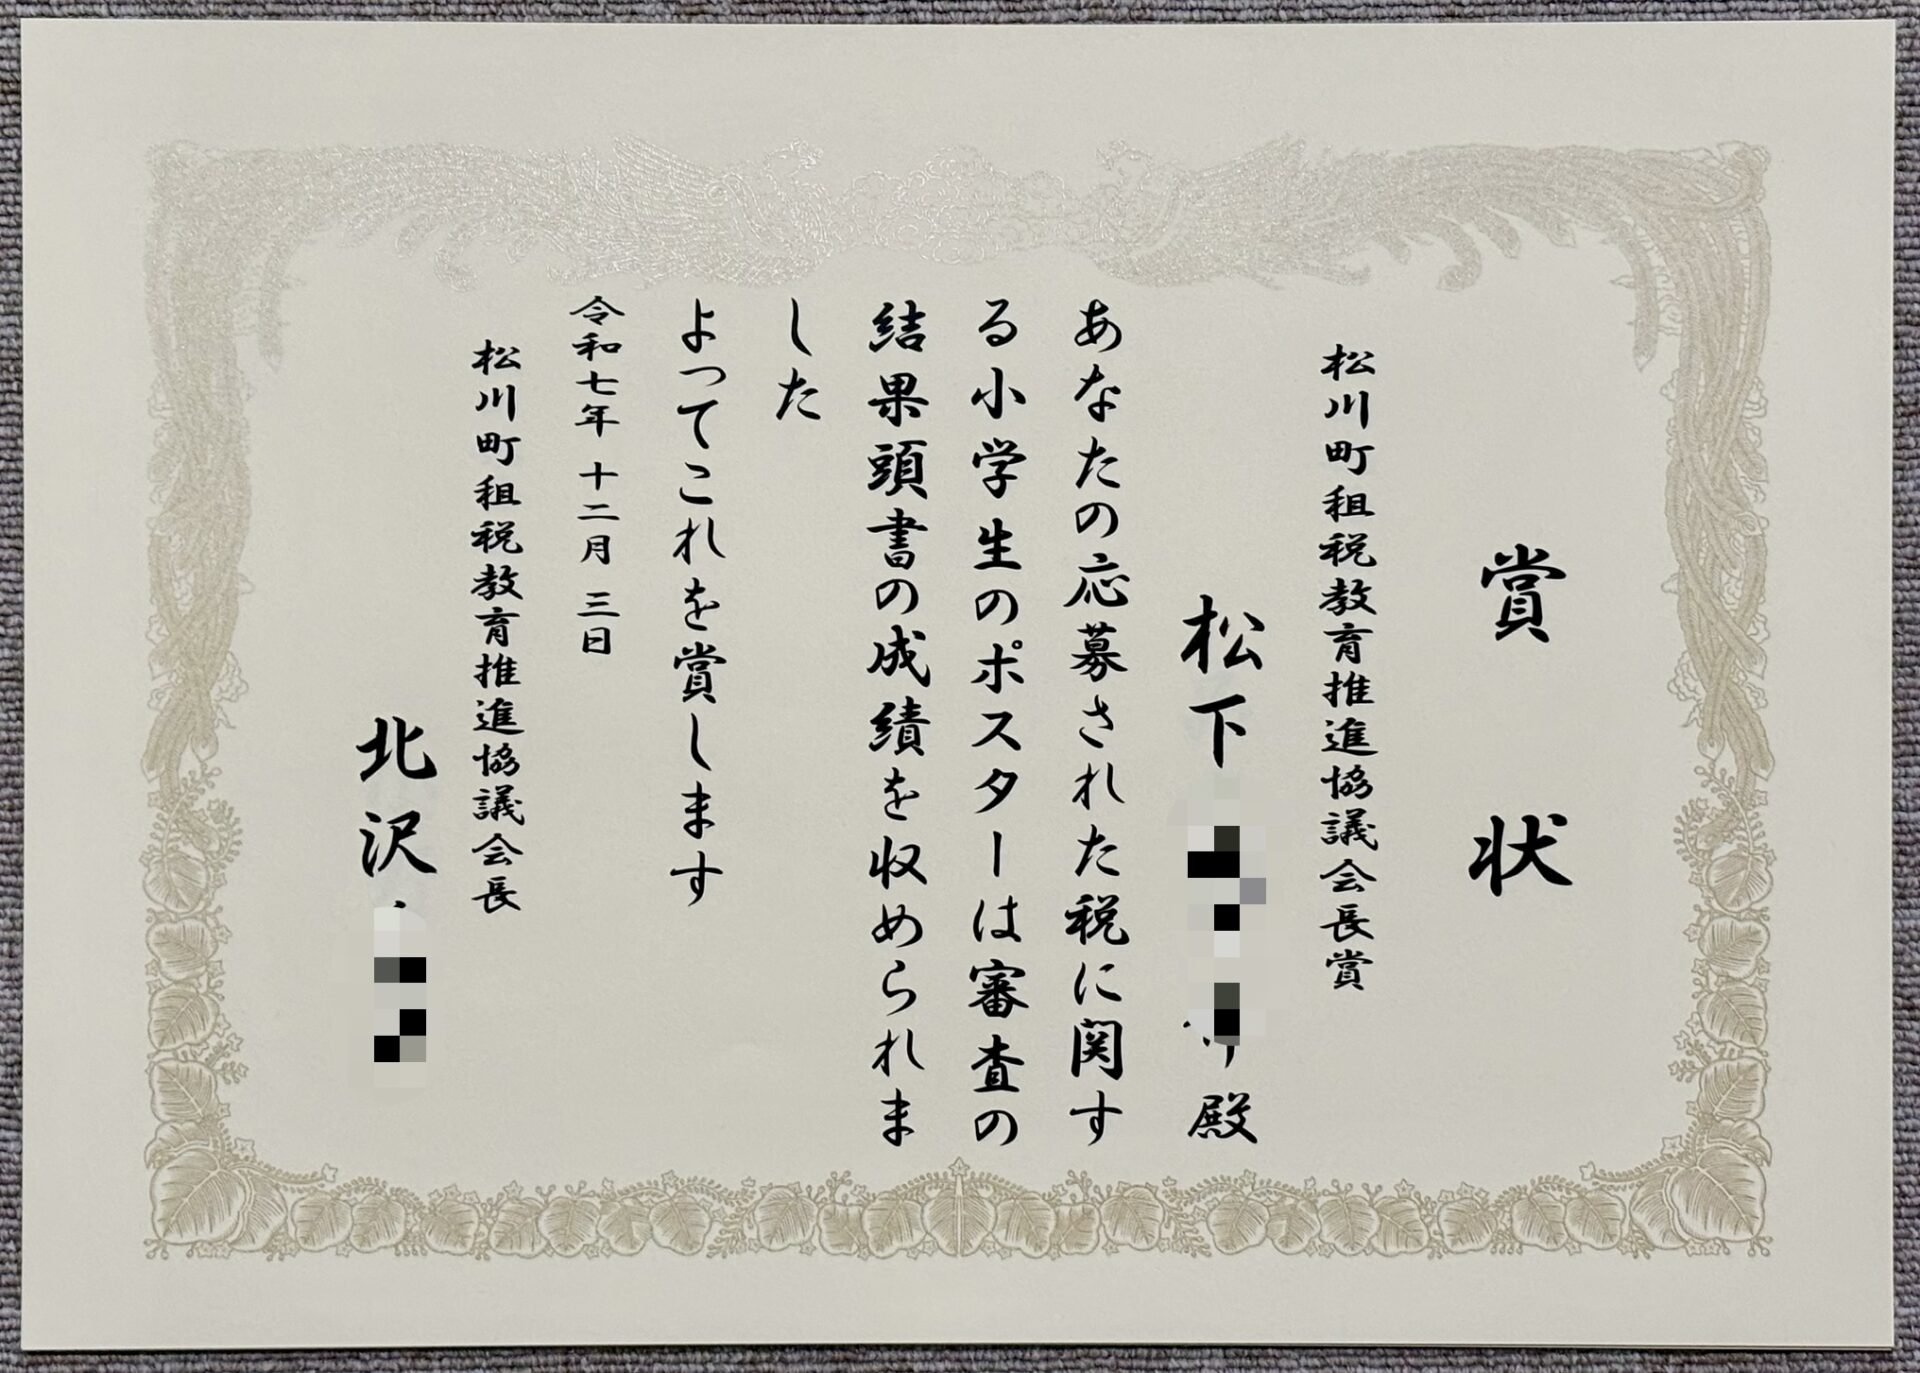 賞状
松川町租税教育推進協議会長賞
松下 殿
あなたの応募された税に関す
る小学生のポスターは審査の
結果頭書の成績を収められま
した
よってこれを賞します
令和七年十二月三日
松川町租税教育推進協議会長
北沢